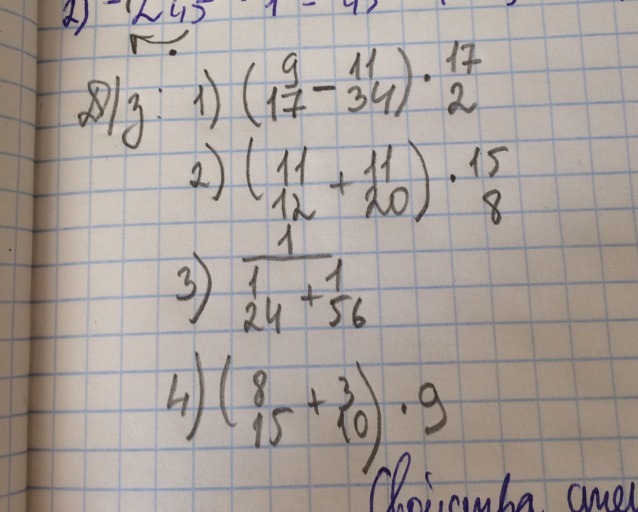 2) -1 245 · 1 = 45
Д/з: 1) (9/17 - 11/34) · 17/2
2) (11/12 + 11/20) · 15/8
3) 1/(1/24 + 1/56)
4) (8/15 + 3/10) · 9
Свойства